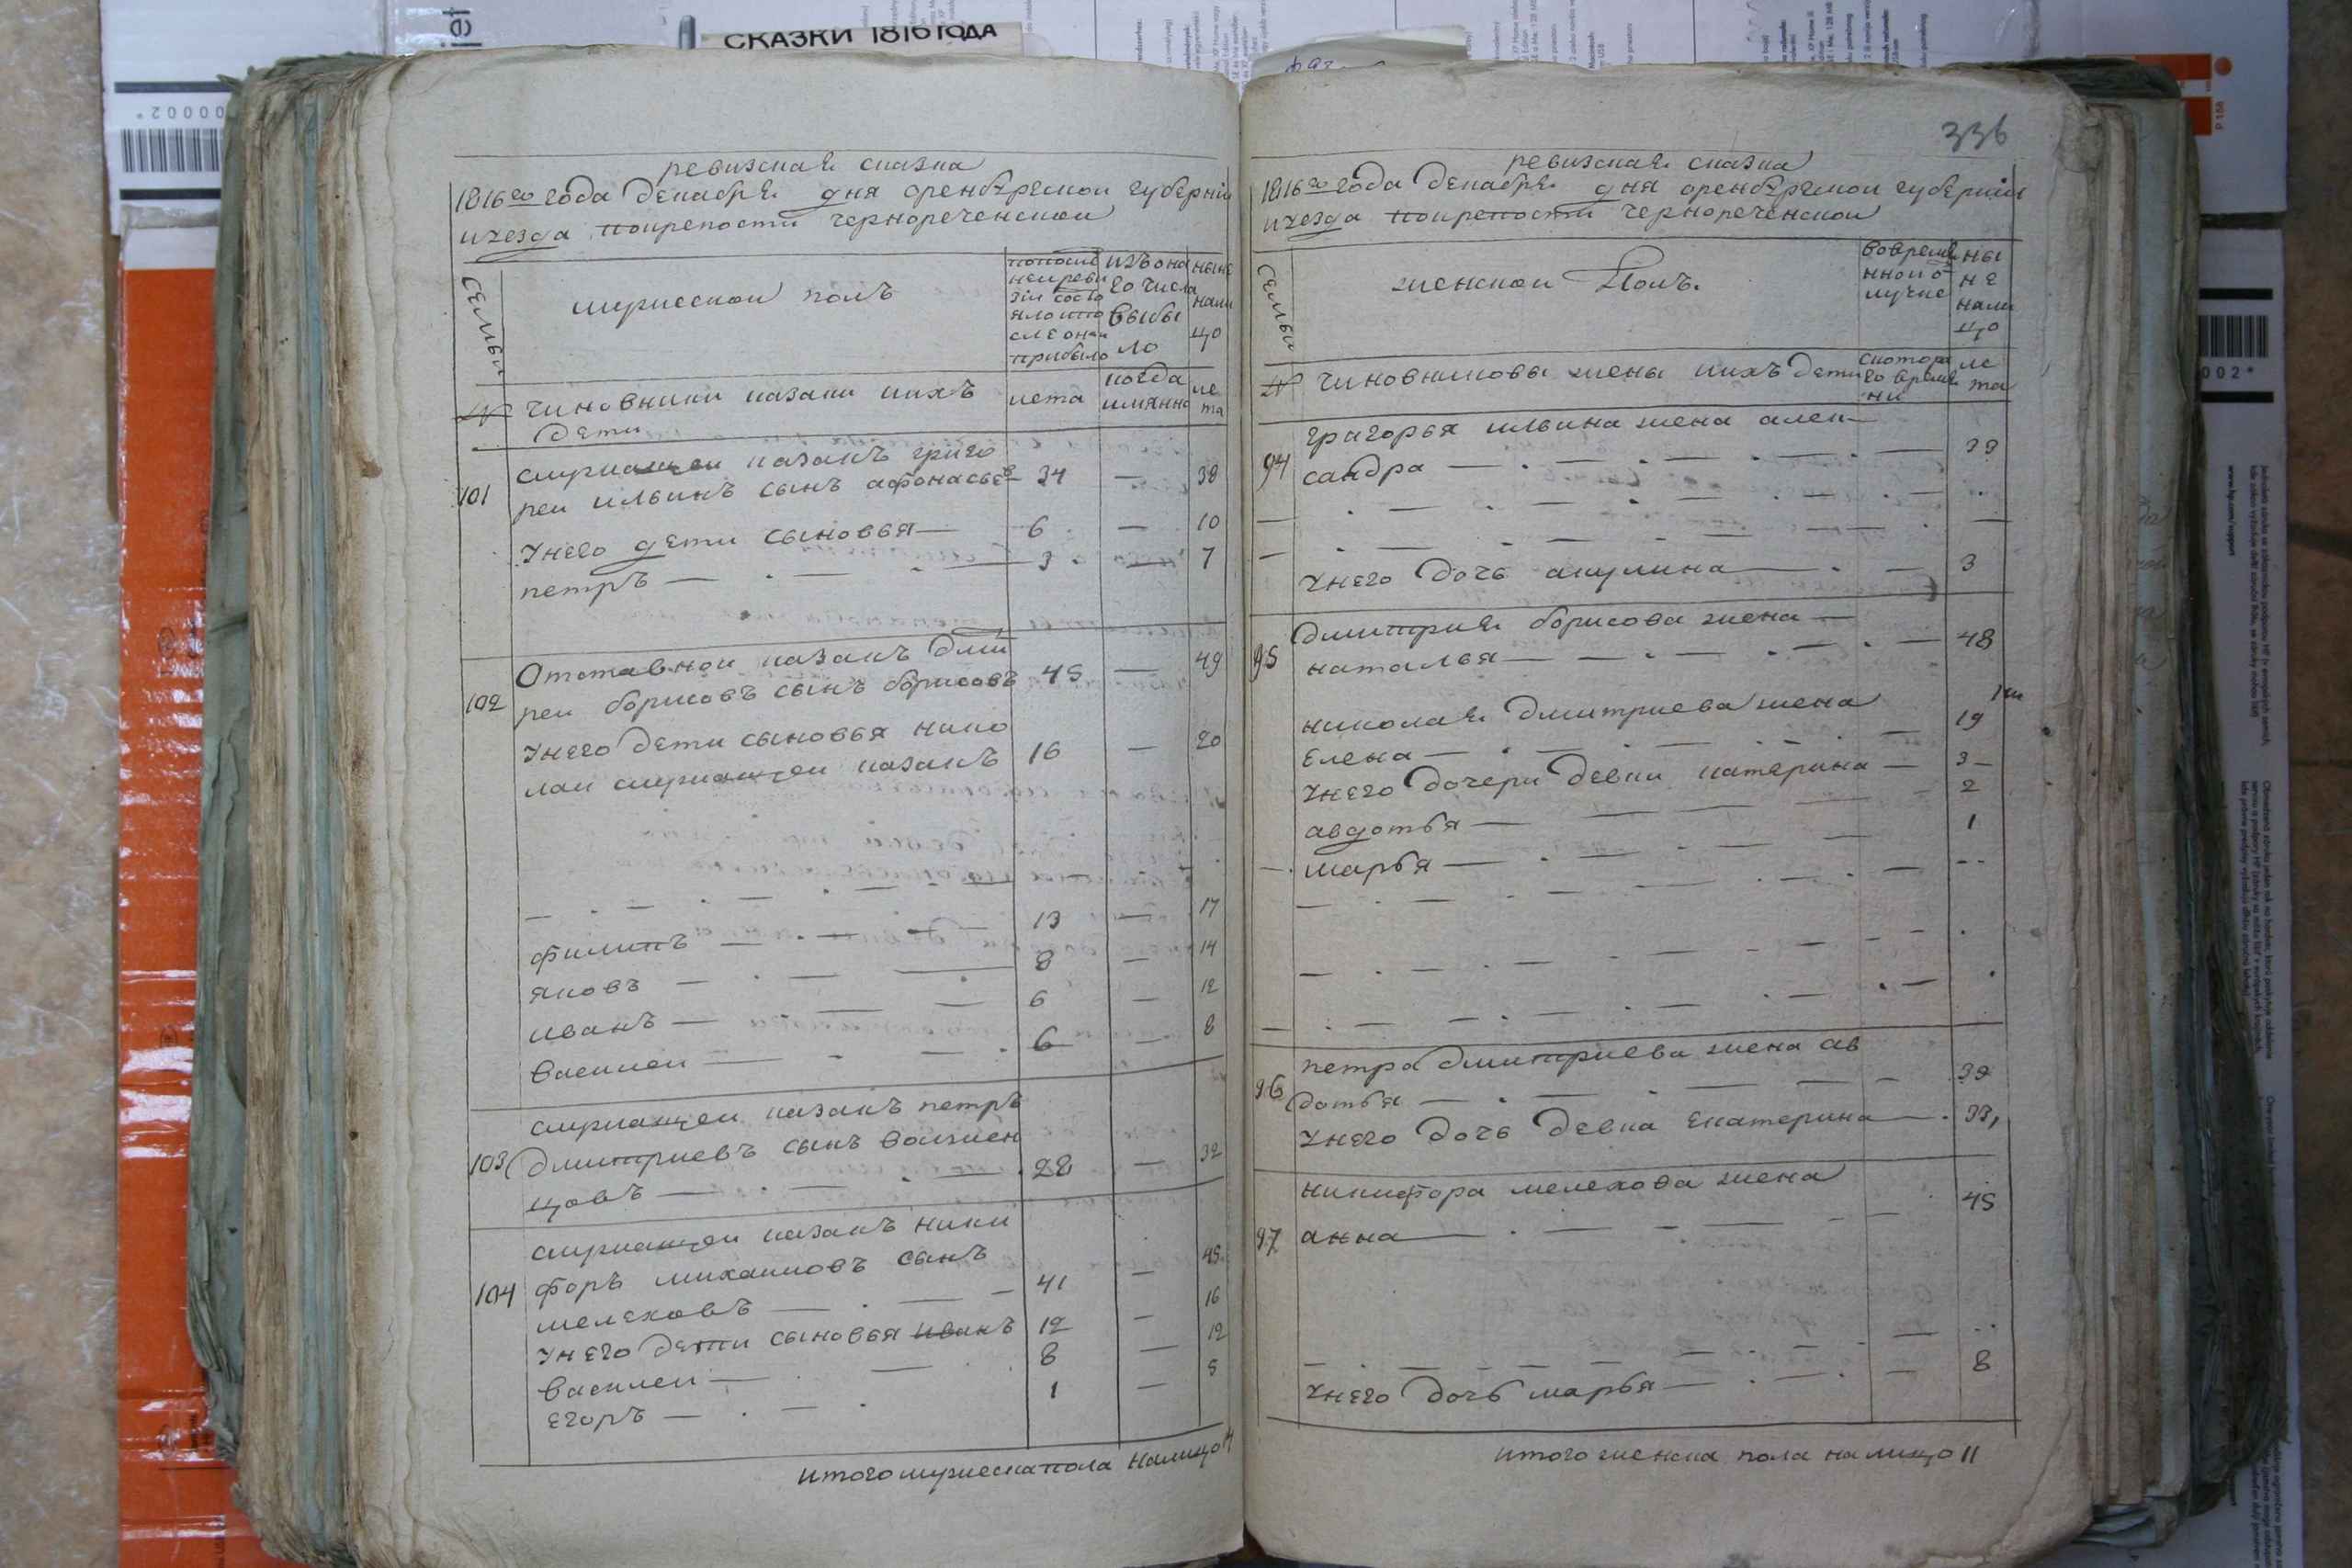 СКАЗКИ 1816 ГОДА
336
ревизская сказка
1816го года декабря дня оренбургской губернии
и уезда покрепости чернореченской
семьи
мужеской полъ
попосле
ней реви
зіи состо
яло ипо
сле оной
прибыло
изъ она
го числа
выбы
ло
ныне
нали
цо
№
чиновники казаки ихъ
дети
лета
когда
имянно
ле
та
101
служащеи казакъ григо
реи ильинъ сынъ афонасьевъ 34 — 38
унего дети сыновья — 6 — 10
петръ — 3 — 7
102
Отставнои казакъ дмит
реи борисовъ сынъ борисовъ 45 — 49
унего дети сыновья нико
лаи служащеи казакъ 16 — 20
филипъ — 13 — 17
яковъ — 8 — 14
иванъ — 6 — 12
василеи — 6 — 8
103
служащеи казакъ петръ
дмитриевъ сынъ
цовъ — 28 — 32
104
служащеи казакъ ники
форъ михаиловъ сынъ
мелеховъ — 41 — 45
унего дети сыновья иванъ 12 — 16
василеи — 8 — 12
егоръ — 1 — 5
итого мужеска пола налицо 14
ревизская сказка
1816го года декабря дня оренбургской губернии
и уезда покрепости чернореченской
семьи
женской Полъ.
вовремен
ной от
лучке
ны
не
нали
цо
№
чиновниковы жены ихъ дети
скотора
го време
ни
ле
та
94
григорья ильина жена алек
сандра — 33
унего дочь акулина — 3
95
дмитрия борисова жена —
наталья — 48
николая дмитриева жена
елена — 19
унего дочери девки катерина — 3
авдотья — 2
марья — 1
96
петра дмитриева жена ав
дотья —
унего дочь девка екатерина —
97
никифора мелехова жена
анна — 45
унего дочь марья — 8
итого женска пола на лицо 11